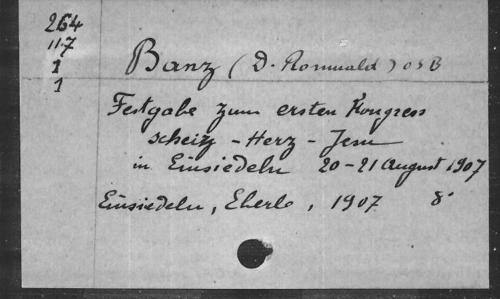 264
117
1
1
Banz (D. Romuald) OSB
Festgabe zum ersten Kongress
scheiz - Herz - Jesu
in Einsiedeln 20-21 August 1907
Einsiedeln, Eberle, 1907 8°